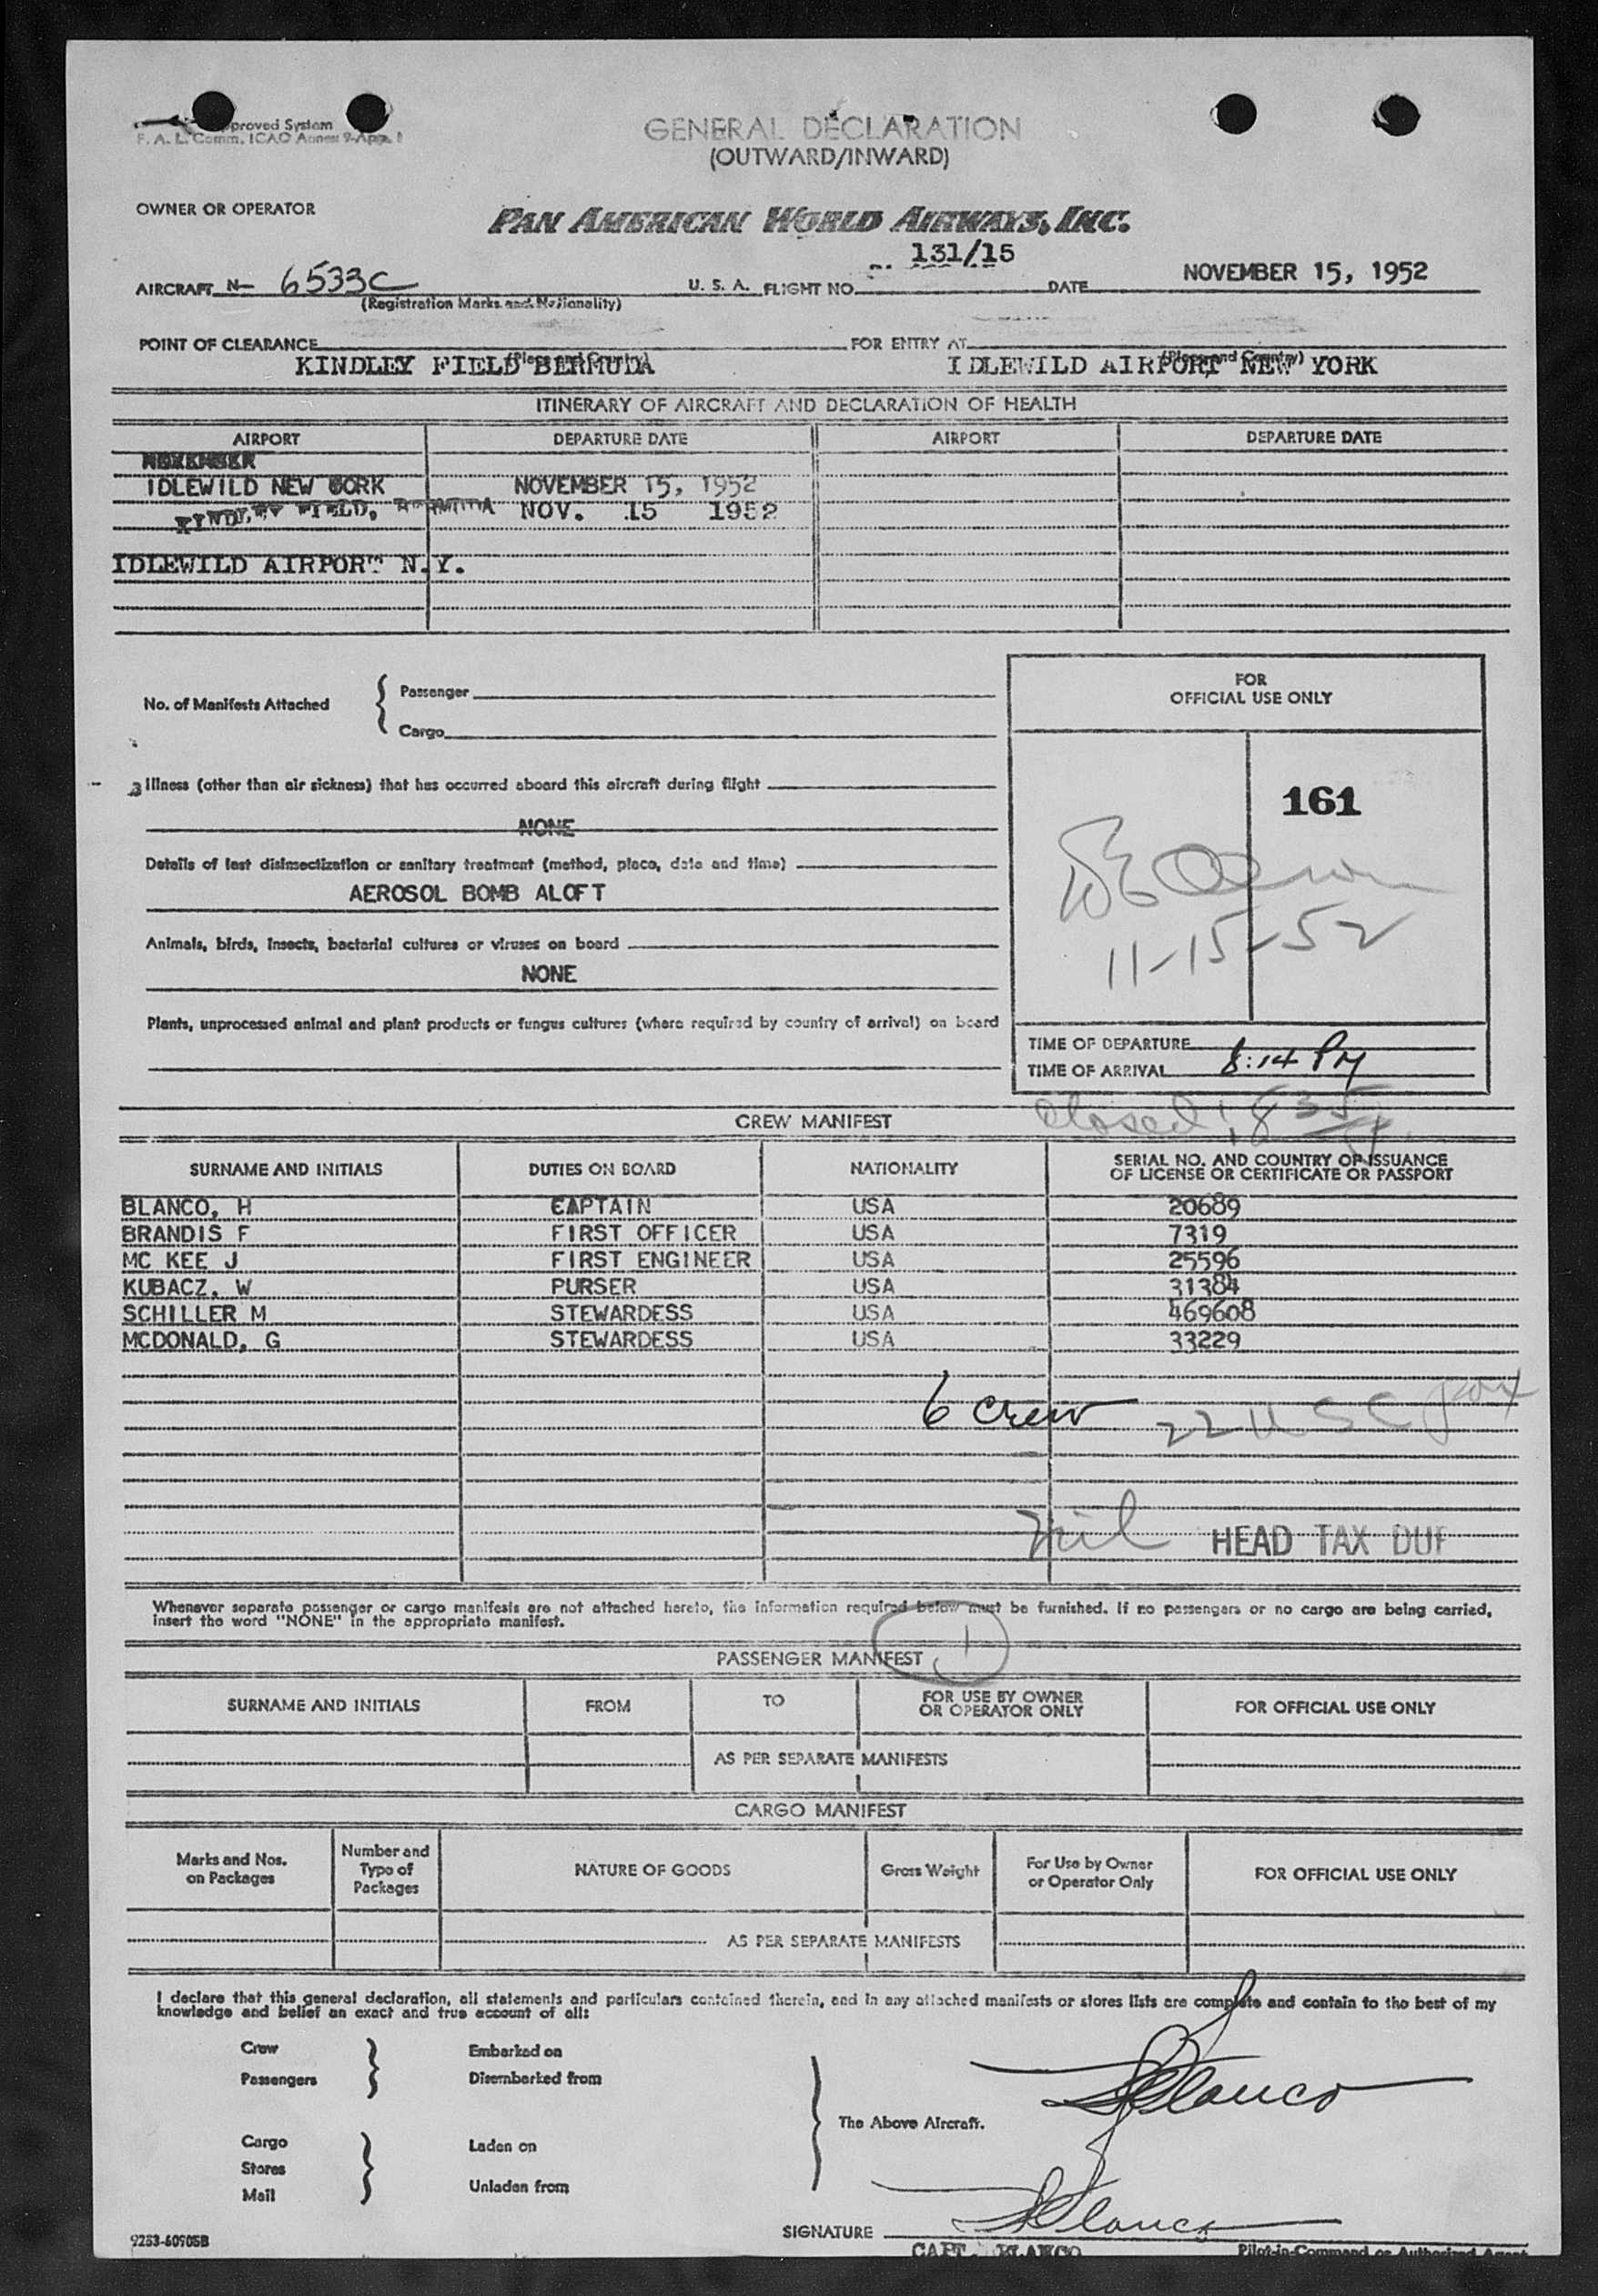 proved System
F. A. L. Comm. ICAO Annex 9-App. 1
GENERAL DECLARATION
(OUTWARD/INWARD)
OWNER OR OPERATOR
PAN AMERICAN WORLD AIRWAYS, INC.
AIRCRAFT N- 6533C U. S. A. FLIGHT NO. 131/15 DATE NOVEMBER 15, 1952
(Registration Marks and Nationality)
POINT OF CLEARANCE KINDLEY FIELD BERMUDA FOR ENTRY AT IDLEWILD AIRPORT NEW YORK
(Place and Country) (Place and Country)
ITINERARY OF AIRCRAFT AND DECLARATION OF HEALTH
AIRPORT DEPARTURE DATE AIRPORT DEPARTURE DATE
NOVEMBER
IDLEWILD NEW YORK NOVEMBER 15, 1952
KINDLEY FIELD, BERMUDA NOV. 15 1952
IDLEWILD AIRPORT N.Y.
FOR
OFFICIAL USE ONLY
No. of Manifests Attached { Passenger
Cargo
161
Illness (other than air sickness) that has occurred aboard this aircraft during flight
NONE
Details of last disinsectization or sanitary treatment (method, place, date and time)
AEROSOL BOMB ALOFT
11-15-52
Animals, birds, insects, bacterial cultures or viruses on board
NONE
Plants, unprocessed animal and plant products or fungus cultures (where required by country of arrival) on board
TIME OF DEPARTURE
TIME OF ARRIVAL 8:14 PM
closed 8 35
CREW MANIFEST
SURNAME AND INITIALS DUTIES ON BOARD NATIONALITY SERIAL NO. AND COUNTRY OF ISSUANCE
OF LICENSE OR CERTIFICATE OR PASSPORT
BLANCO, H CAPTAIN USA 20689
BRANDIS F FIRST OFFICER USA 7319
MC KEE J FIRST ENGINEER USA 25596
KUBACZ, W PURSER USA 31384
SCHILLER M STEWARDESS USA 469608
MCDONALD, G STEWARDESS USA 33229
6 crew 22 USC
nil HEAD TAX DUE
Whenever separate passenger or cargo manifests are not attached hereto, the information required below must be furnished. If no passengers or no cargo are being carried,
insert the word "NONE" in the appropriate manifest.
1
PASSENGER MANIFEST
SURNAME AND INITIALS FROM TO FOR USE BY OWNER
OR OPERATOR ONLY FOR OFFICIAL USE ONLY
AS PER SEPARATE MANIFESTS
CARGO MANIFEST
Marks and Nos.
on Packages Number and
Type of
Packages NATURE OF GOODS Gross Weight For Use by Owner
or Operator Only FOR OFFICIAL USE ONLY
AS PER SEPARATE MANIFESTS
I declare that this general declaration, all statements and particulars contained therein, and in any attached manifests or stores lists are complete and contain to the best of my
knowledge and belief an exact and true account of all:
Crew Embarked on
Passengers Disembarked from
Blanco
The Above Aircraft.
Cargo Laden on
Stores
Mail Unladen from
SIGNATURE Blanco
9253-60905B
CAPT. BLANCO Pilot-in-Command or Authorized Agent